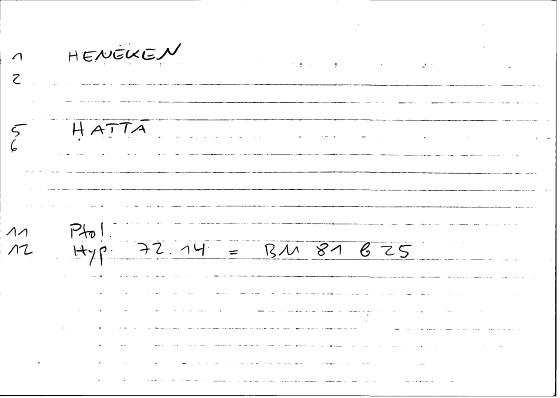 1 HENEKEN
2
5 HATTA
6
11 Ptol.
12 Hyp. 72.14 = BM 81 6 25